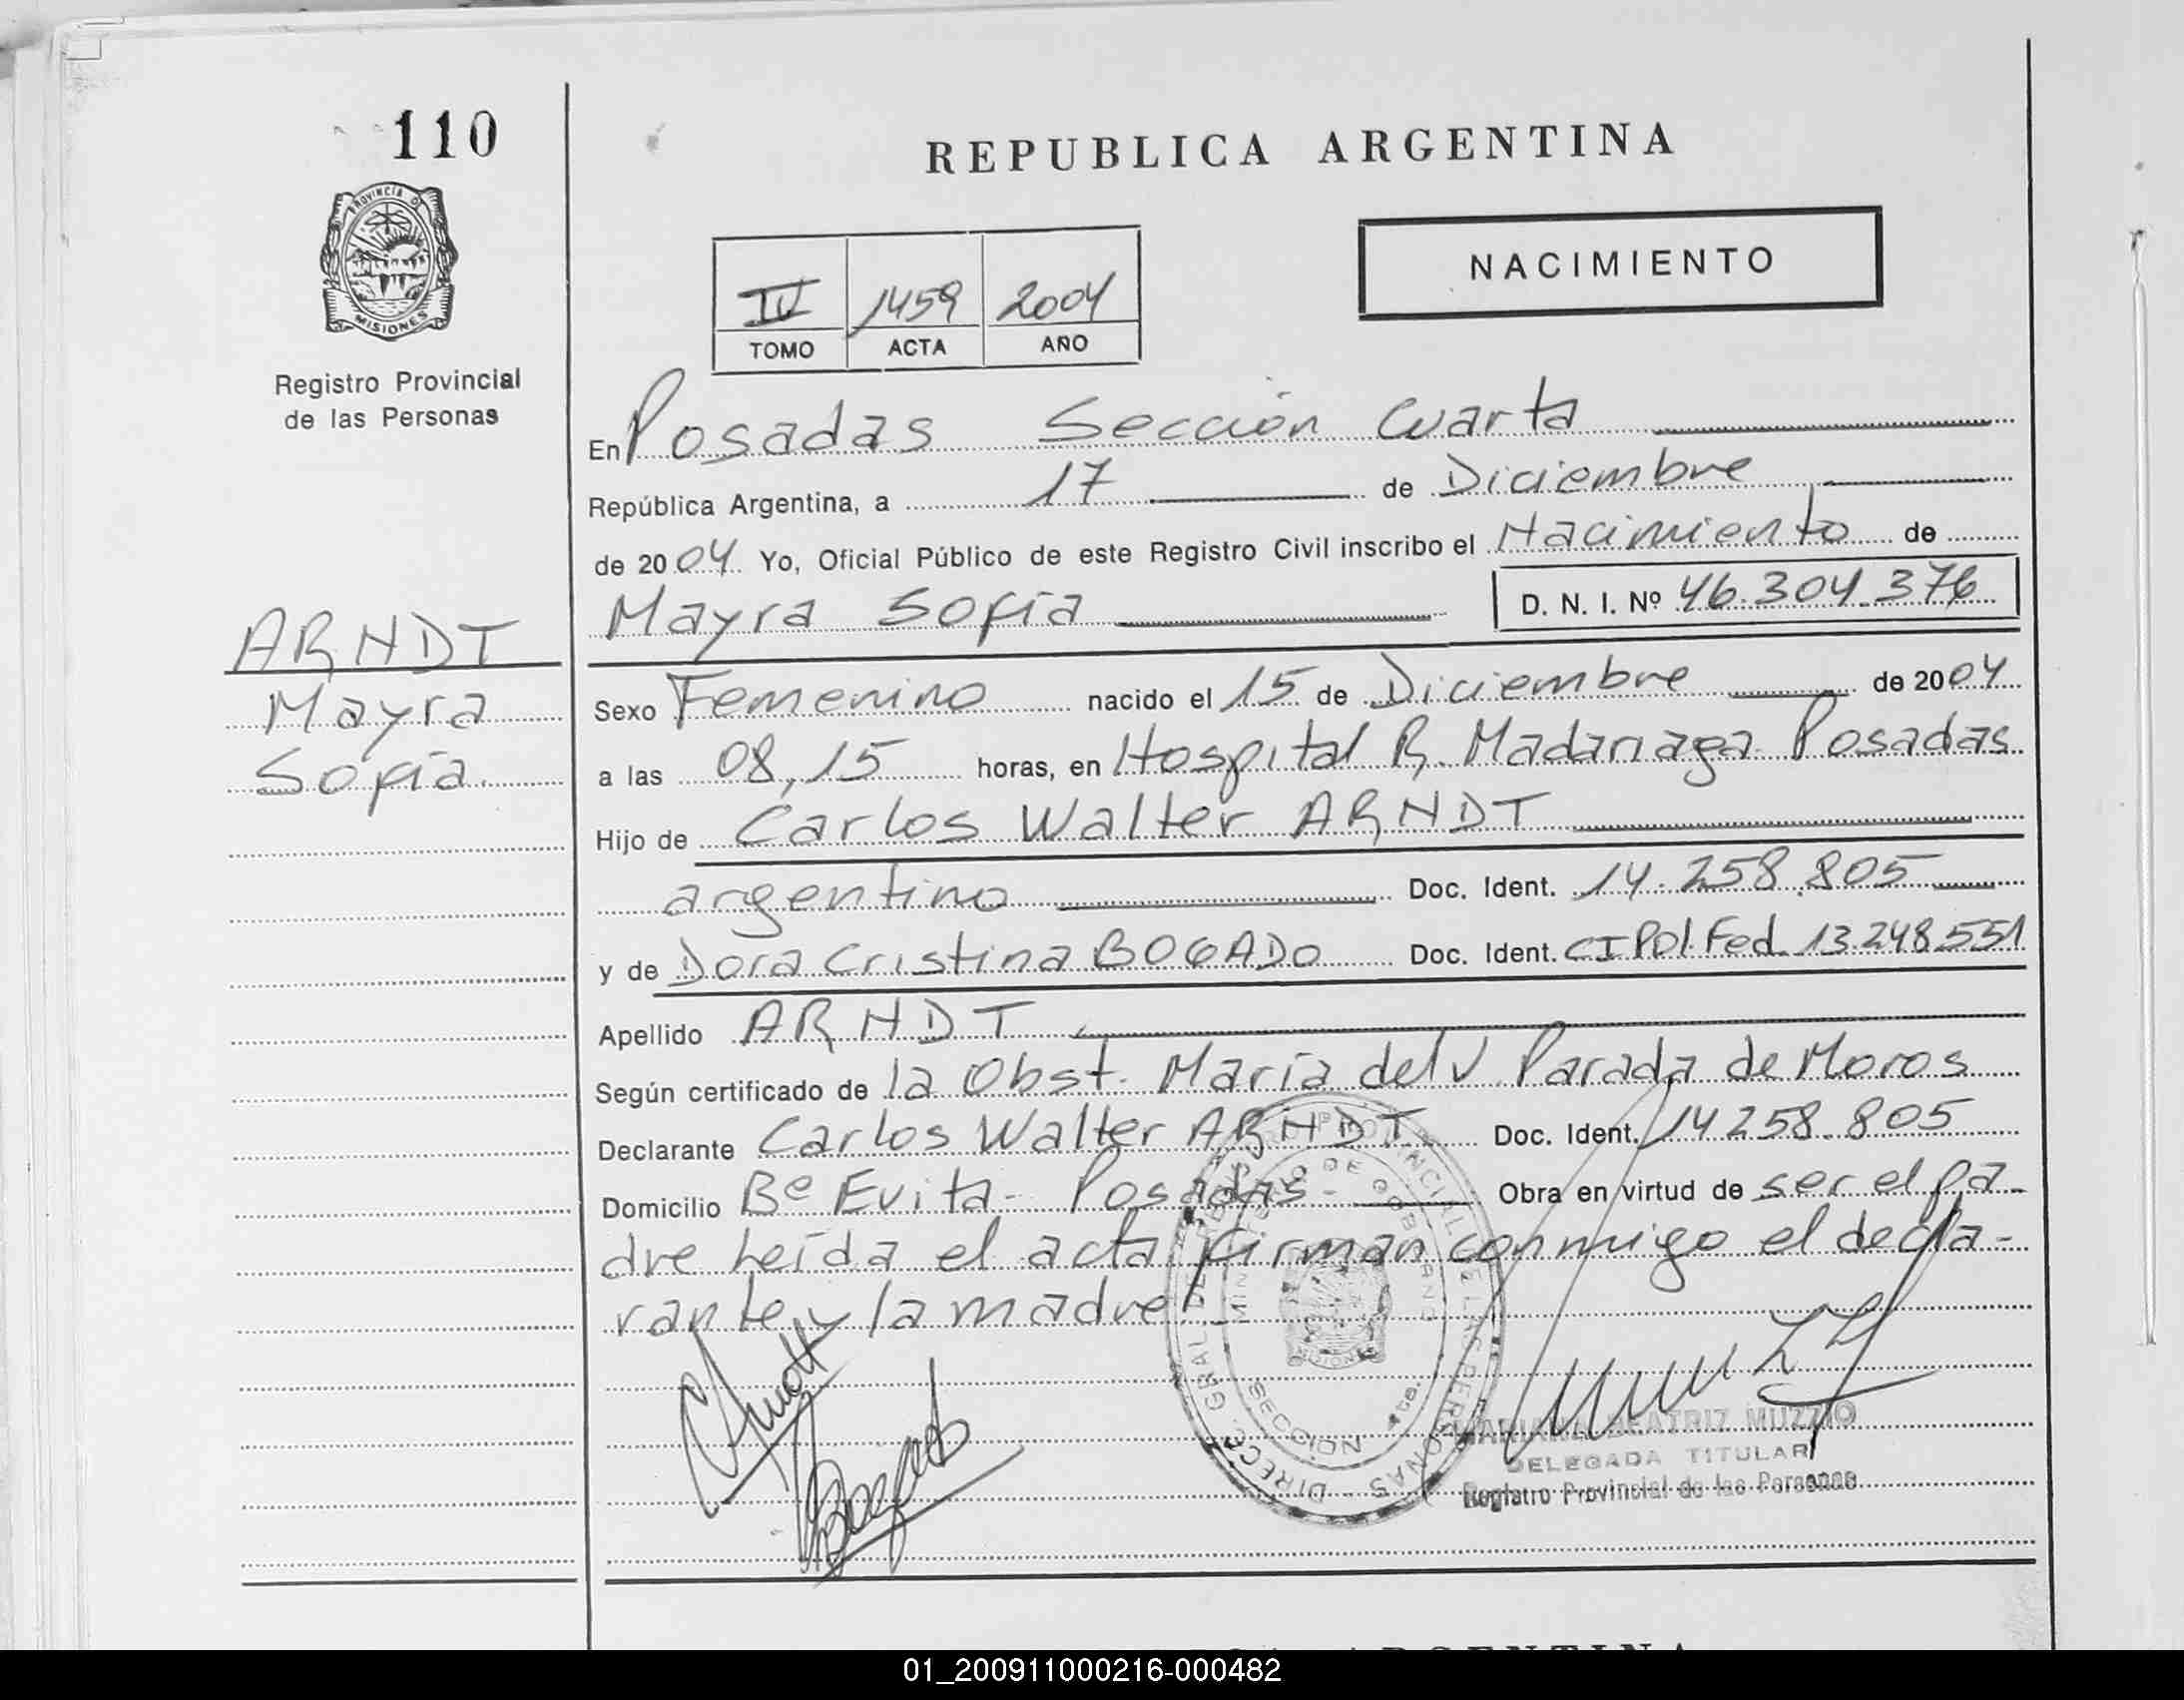 110
PROVINCIA D
MISIONES
Registro Provincial
de las Personas
REPUBLICA ARGENTINA
NACIMIENTO
IV 1459 2004
TOMO ACTA AÑO
En Posadas Sección Cuarta
República Argentina, a 17 de Diciembre
de 2004 Yo, Oficial Público de este Registro Civil inscribo el Nacimiento de
Mayra Sofía D. N. I. Nº 46.304.376
ARNDT
Mayra
Sofía.
Sexo Femenino nacido el 15 de Diciembre de 2004
a las 08,15 horas, en Hospital R. Madariaga Posadas
Hijo de Carlos Walter ARNDT
argentino Doc. Ident. 14.258.805
y de Dora Cristina BOGADO Doc. Ident. CI Pol. Fed. 13.248.551
Apellido ARNDT
Según certificado de la Obst. María del V Parada de Moros
Declarante Carlos Walter ARNDT Doc. Ident. 14 258.805
Domicilio Bº Evita - Posadas - Obra en virtud de ser el pa-
dre Leída el acta firman conmigo el decla-
rante y la madre
Bogado
DIRECC. GRAL. DEL REGISTRO PROVINCIAL DE LAS PERSONAS
MINISTERIO DE GOBIERNO
MISIONES
SECCION 4ta.
MARIANA BEATRIZ MUZZIO
DELEGADA TITULAR
Registro Provincial de las Personas
01_200911000216-000482